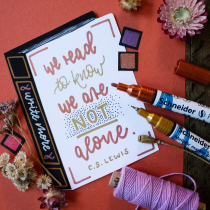 we read
to know
we are
NOT
alone.
C.S. LEWIS
write more
Schneider
Schneider